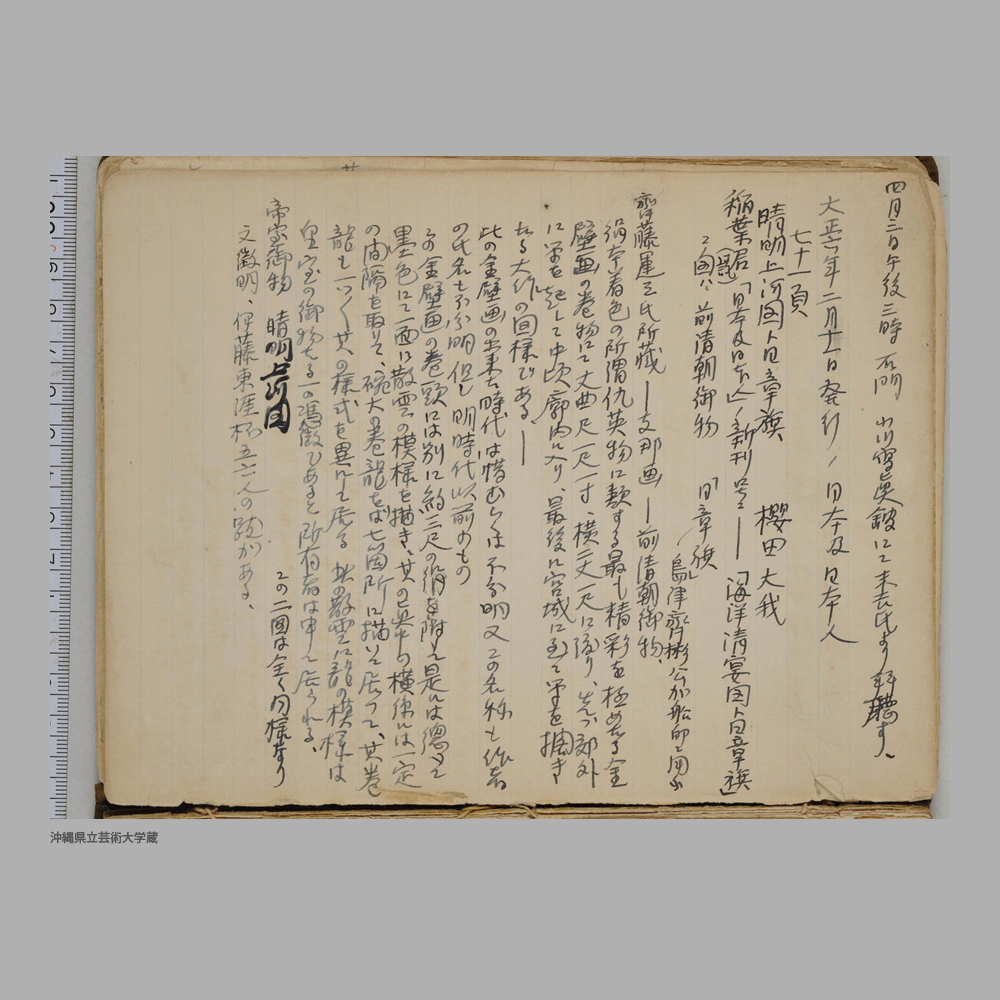 四月三日午後三時 石門 小川写真館にて末吉氏より拝聴す、
大正六年二月十一日発行ノ日本及日本人
七十一頁
晴明上河図ト日章旗 櫻田大我
稲葉君「日本及日本人ノ新刊号ニ―「海洋清宴図ト日章旗」
ニ図ハ前清朝御物 日章旗
島津齊彬公が船印ニ用ふ
齊藤運三氏所蔵―支那画―前清朝御物、
絹本着色の所謂仇英物に類する最も精彩を極めたる金
壁画の巻物にて丈曲尺一尺一寸、横二丈一尺に渡り、先づ郊外
に筆を起して中頃廓内に入り、最後に宮城に至て筆を擱き
たる大作の図様である―
此の金壁画の出来た時代は惜むらくは不分明又この名称も作者
の氏名も不分明但し明時代以前のもの
この金壁画の巻頭には別に約三尺の絹を附し是には總て
墨色にて西に散雲の模様を描き、其の巴字の横線には一定
の間隔を取りて、碗大の巻龍をば七箇所に描いて居つて、其巻
龍も一々其の様式を異にして居る 此の散雲に龍の模様は
皇室の御物たる一の憑徴であると所有者は申して居られる
この二図は全く同様なり
帝室御物 晴明上河図
文徴明、伊藤東涯杯五六人の跋がある、
沖縄県立芸術大学蔵